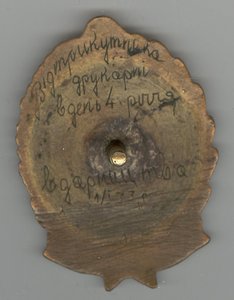 Від трикутника
друкарні
в день 4 річчя
вдарництва